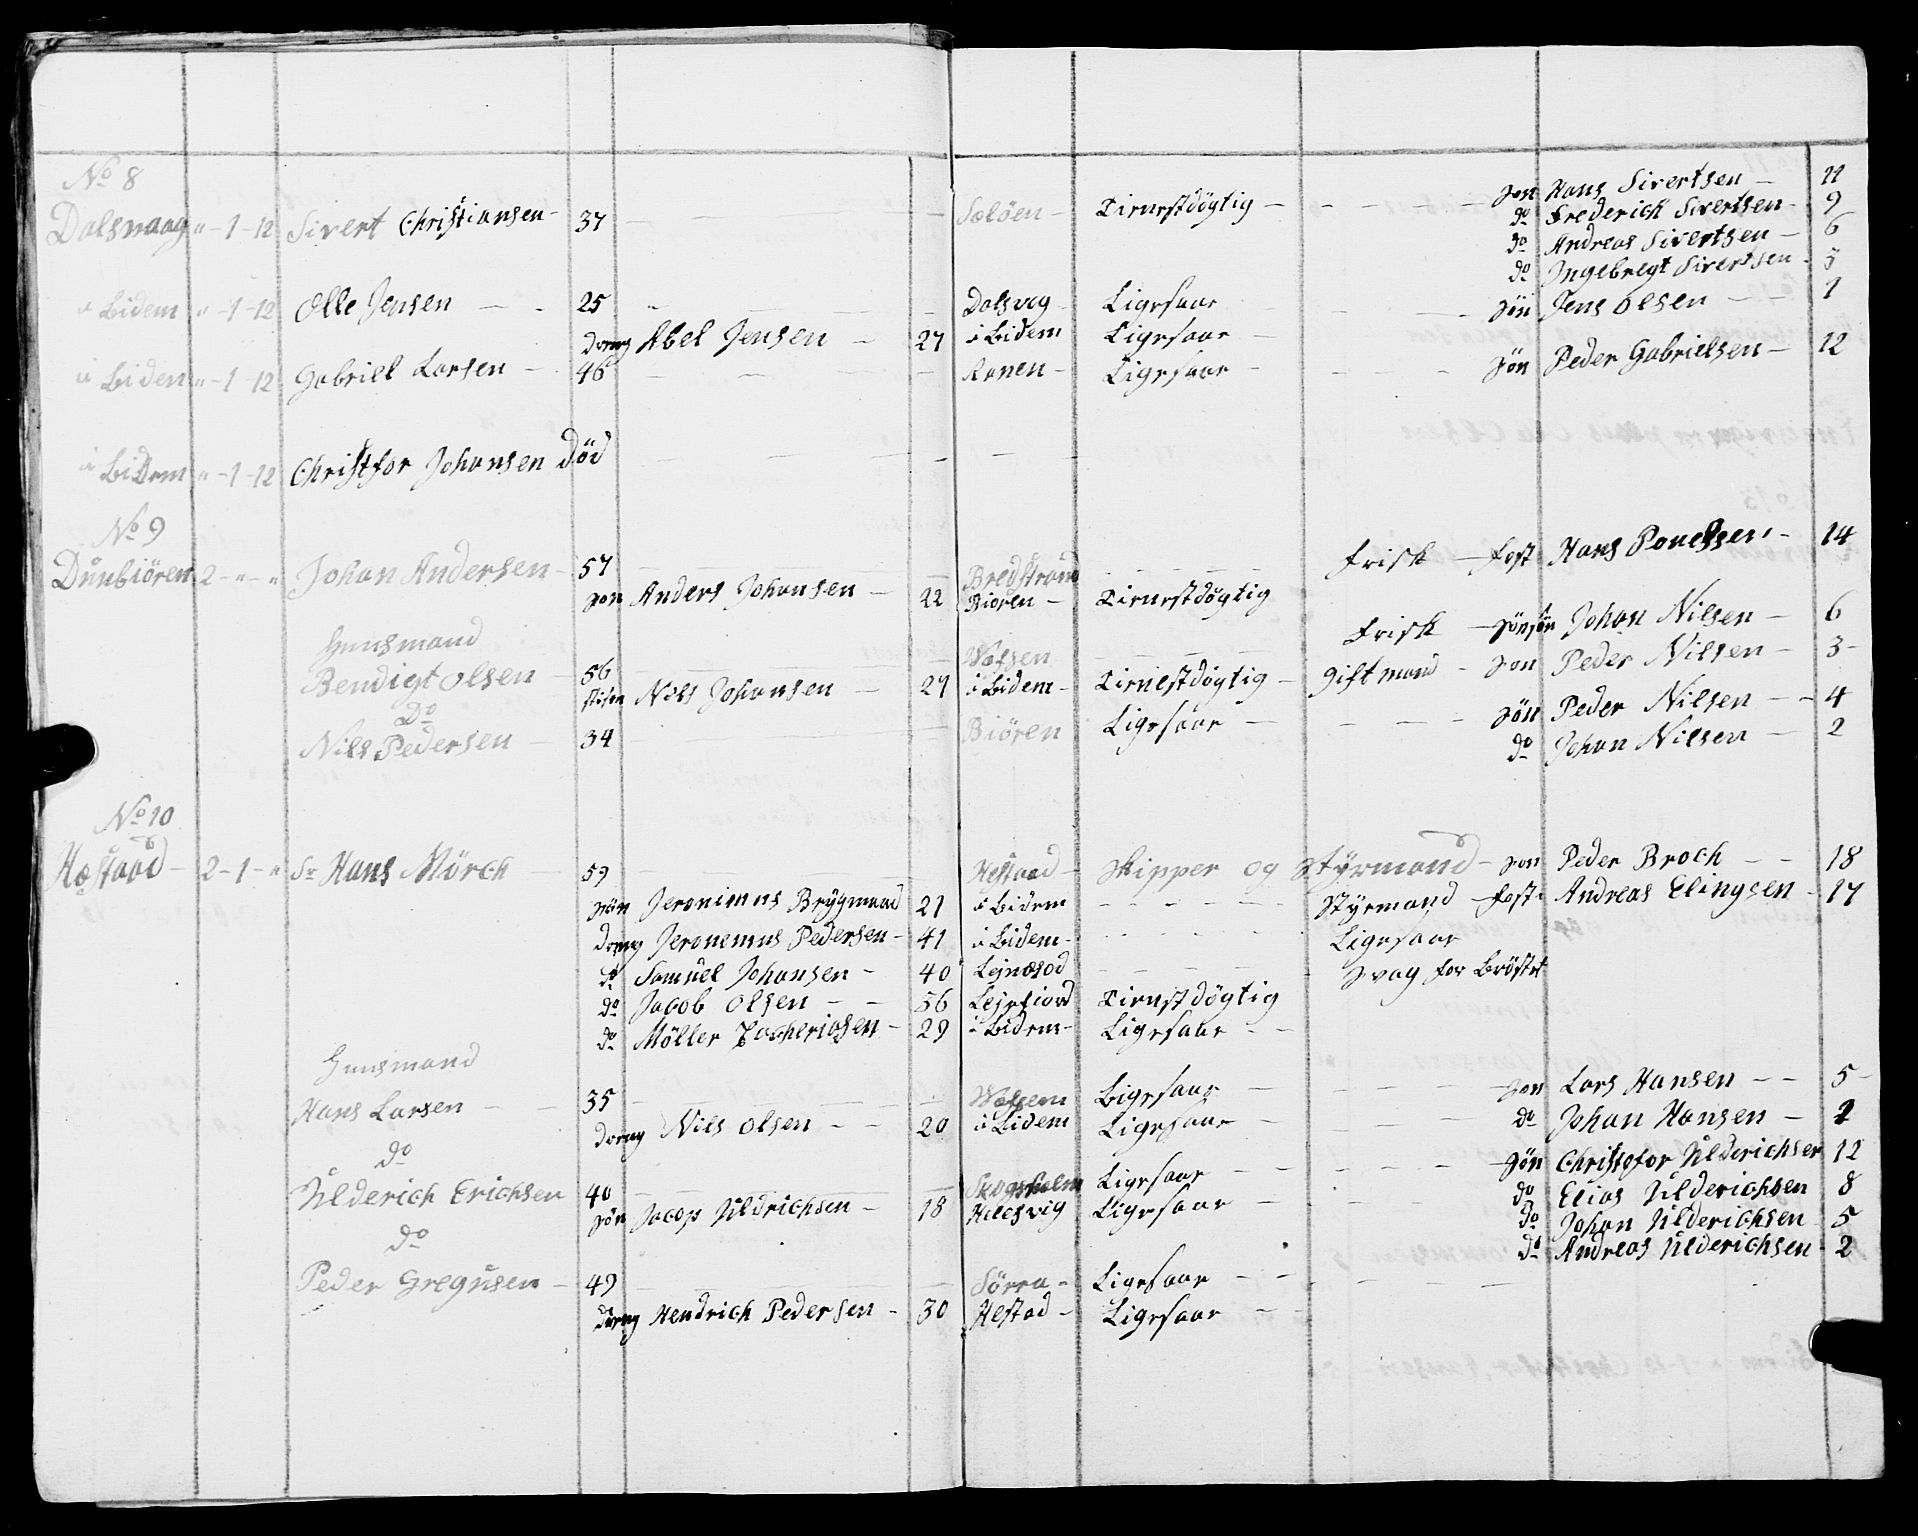 No 8
Dalsvaag " - 1 - 12 Sivert Christiansen - 37 - Søløen - Tienestdögtig - Søn Hans Sivertsen - 11
do Frederich Sivertsen - 9
do Andreas Sivertsen - 6
do Ingebregt Sivertsen - 3
i bidem " - 1 - 12 Olle Jensen - 25 " - Dalsvog Ligesaar - Søn Jens Olsen - 1
dreng Abel Jensen - 27 i bidem Ligesaar -
i biden " - 1 - 12 Gabriel Larsen - 46 - Ligesaar - Søn Peder Gabrielsen - 12
i bidem " - 1 - 12 Christfor Johansen Död -
No 9
Dünbiören 2 - " - " Johan Andersen - 57 - Bredstrand - Frisk - Fost Hans Pouelsen - 14
Søn Anders Johansen - 22 Biören - Tienestdögtig
Huusmand Frisk - Sönsön Johan Nilsen - 6
Bendigt Olsen - 56 - Wefsen - Søn Peder Nilsen - 3
stifsøn Nils Johansen - 27 i bidem - Tienestdögtig - gift mand -
Do
Nils Pedersen - 34 - Biören Ligesaar - Søn Peder Nilsen - 4
do Johan Nilsen - 2
No 10
Hæstaad - 2 - 1 - " Sr Hans Mörch 59 Hestaad - Skipper og Styrmand - Søn Peder Broch - 18
Søn Jeronimus Brÿgmand 21 i bidem - Styrmand - Fost Andreas Elingsen - 17
dreng Jeronemus Pedersen - 41 i bidem - Ligesaar
do Samuel Johansen - 40 - Svag for Bröstet
do Jacob Olsen - 36 Lejrfiord Tienestdögtig
do Möller Zacheriasen - 29 i bidem - Ligesaar -
Huusmand
Hans Larsen - 35 - Wefsen Ligesaar - Søn Lars Hansen - 5
dreng Nils Olsen - 20 i bidem Ligesaar - do Johan Hansen - 2
do
Ulderich Erichsen 40 - Skogsholm Ligesaar - Søn Christofor Ulderichsen 12
Søn Jacop Uldrichsen - 18 Ligesaar - do Elias Ulderichsen 8
do Johan Ulderichsen 5
do do Andreas Ulderichsen - 2
Peder Gregusen - 49 - Sörra - Ligesaar -
dreng Hendrich Pedersen - 30 Hestad - Ligesaar -